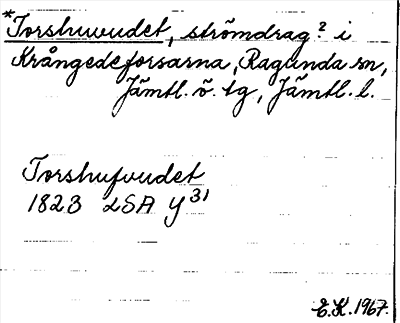 *Torshuvudet, strömdrag? i
Krångedeforsarna, Ragunda sn,
Jämtl. ö. tg, Jämtl. l.
Torshufvudet
1823 LSA Y31
E.K. 1967.